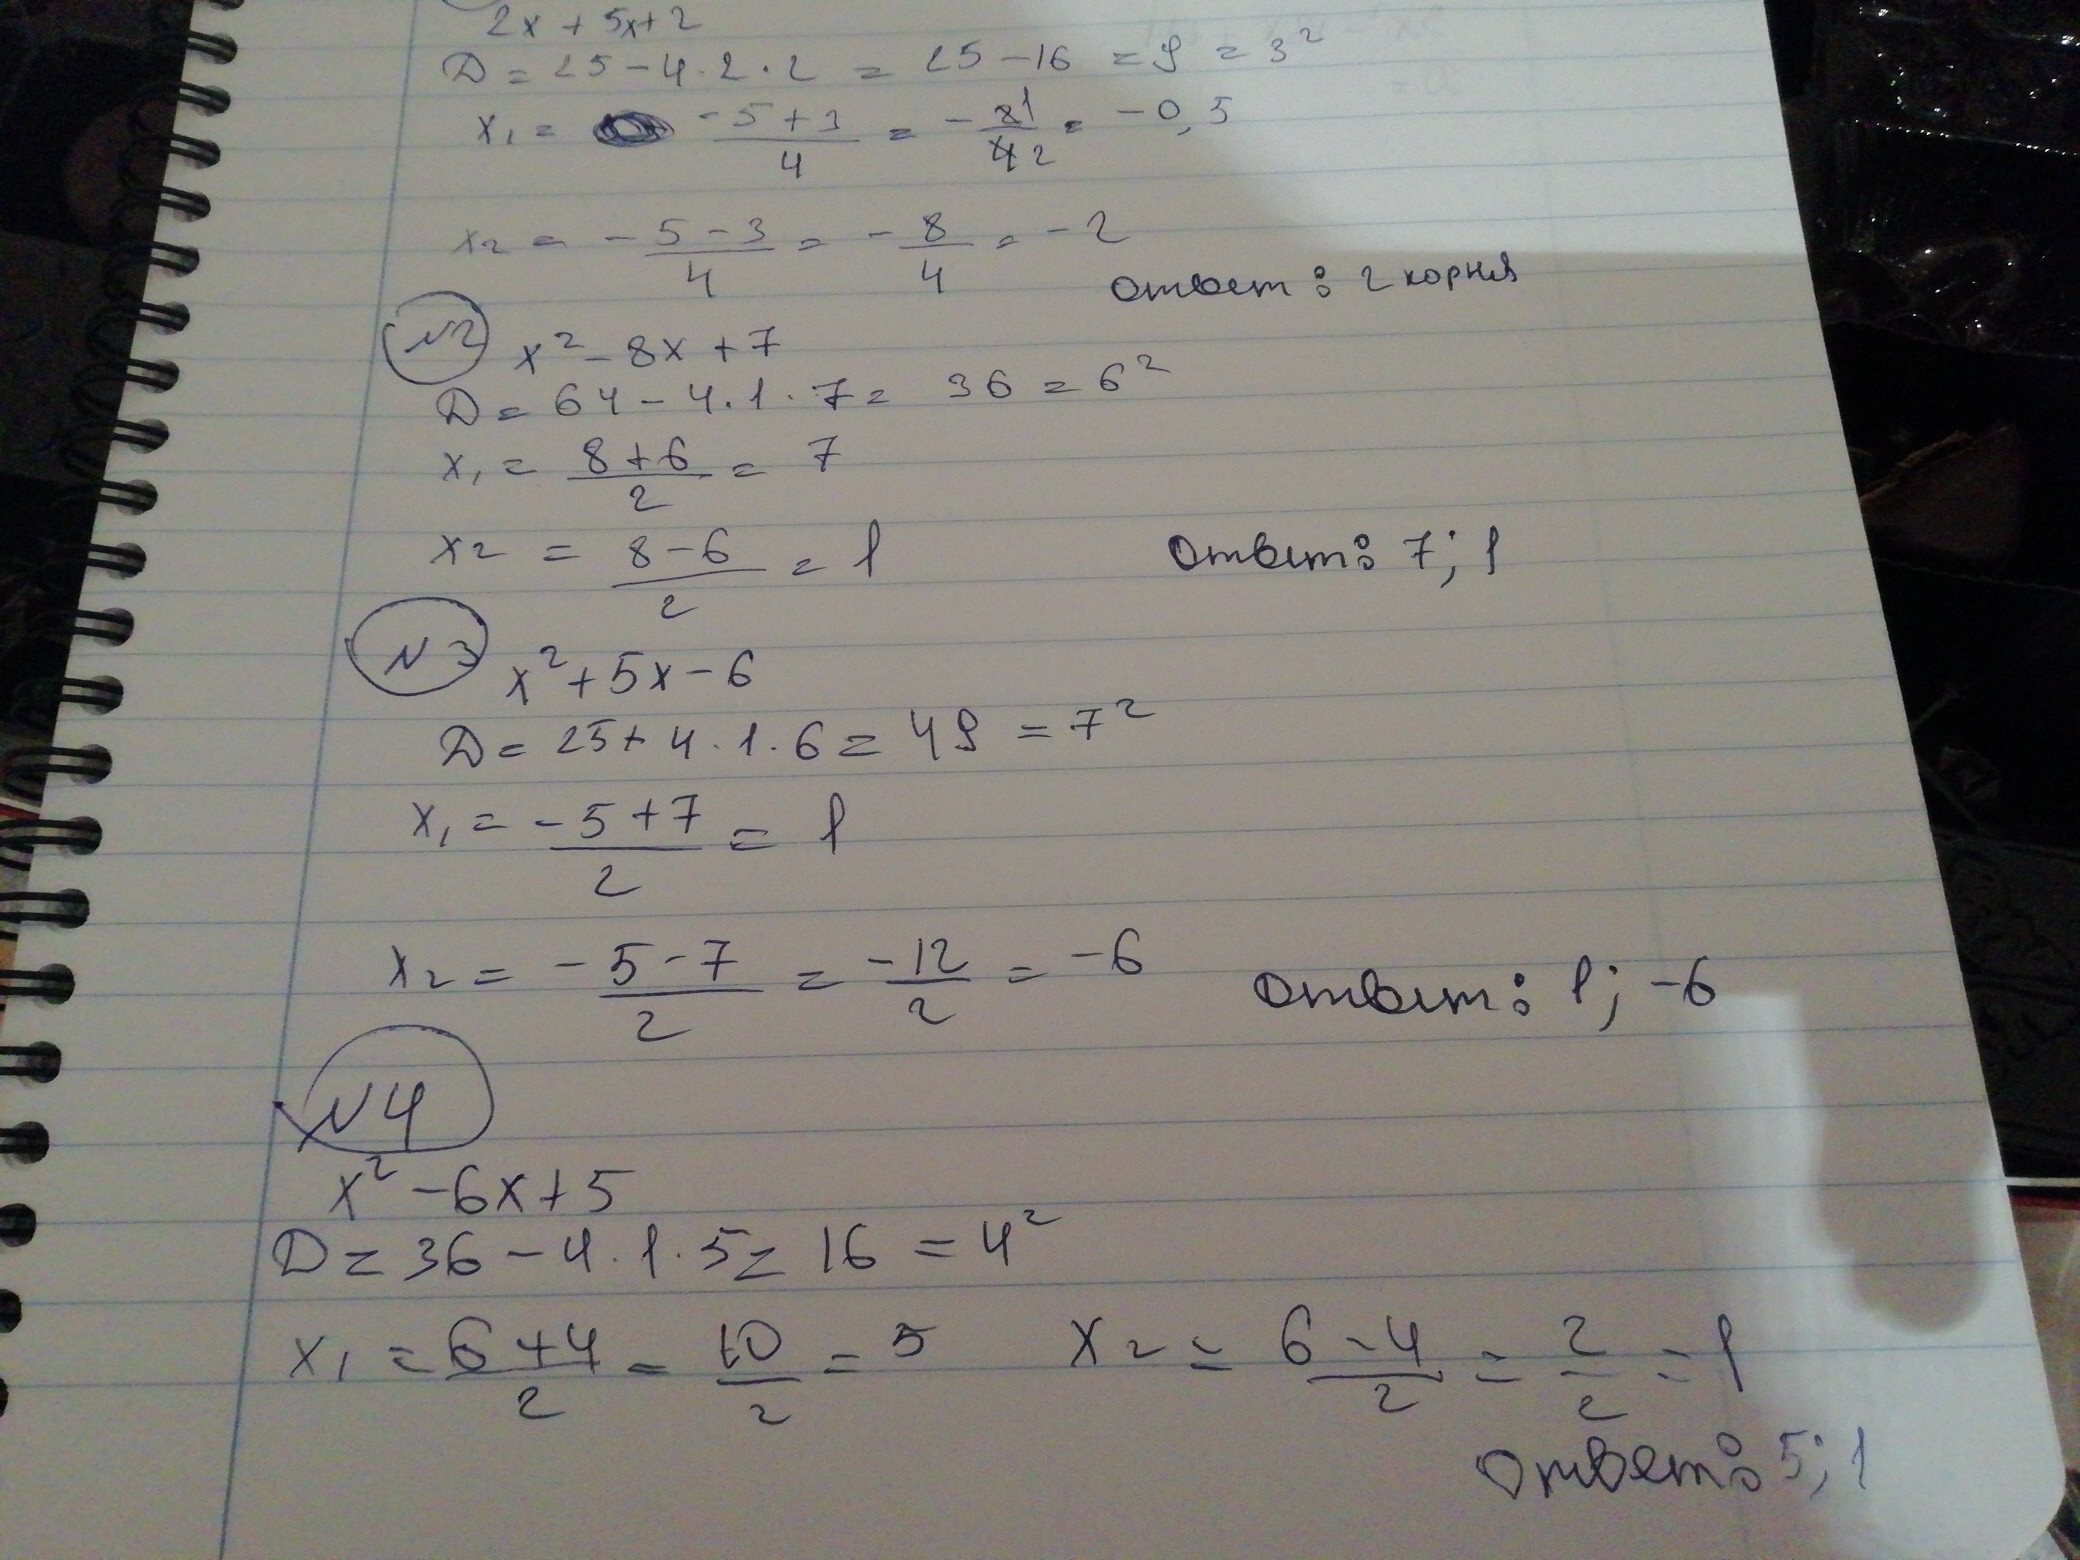 2x + 5x+2
D = 25 - 4 · 2 · 2 = 25 - 16 = 9 = 3²
x₁ = (-5+3)/4 = -21/42 = -0,5
x₂ = -(5-3)/4 = -8/4 = -2
Ответ: 2 корня
№2 x² - 8x + 7
D = 64 - 4 · 1 · 7 = 36 = 6²
x₁ = (8+6)/2 = 7
x₂ = (8-6)/2 = 1 Ответ: 7; 1
№3 x² + 5x - 6
D = 25 + 4 · 1 · 6 = 49 = 7²
x₁ = (-5+7)/2 = 1
x₂ = (-5-7)/2 = -12/2 = -6 Ответ: 1; -6
№4
x² - 6x + 5
D = 36 - 4 · 1 · 5 = 16 = 4²
x₁ = (6+4)/2 = 10/2 = 5 x₂ = (6-4)/2 = 2/2 = 1
Ответ: 5; 1